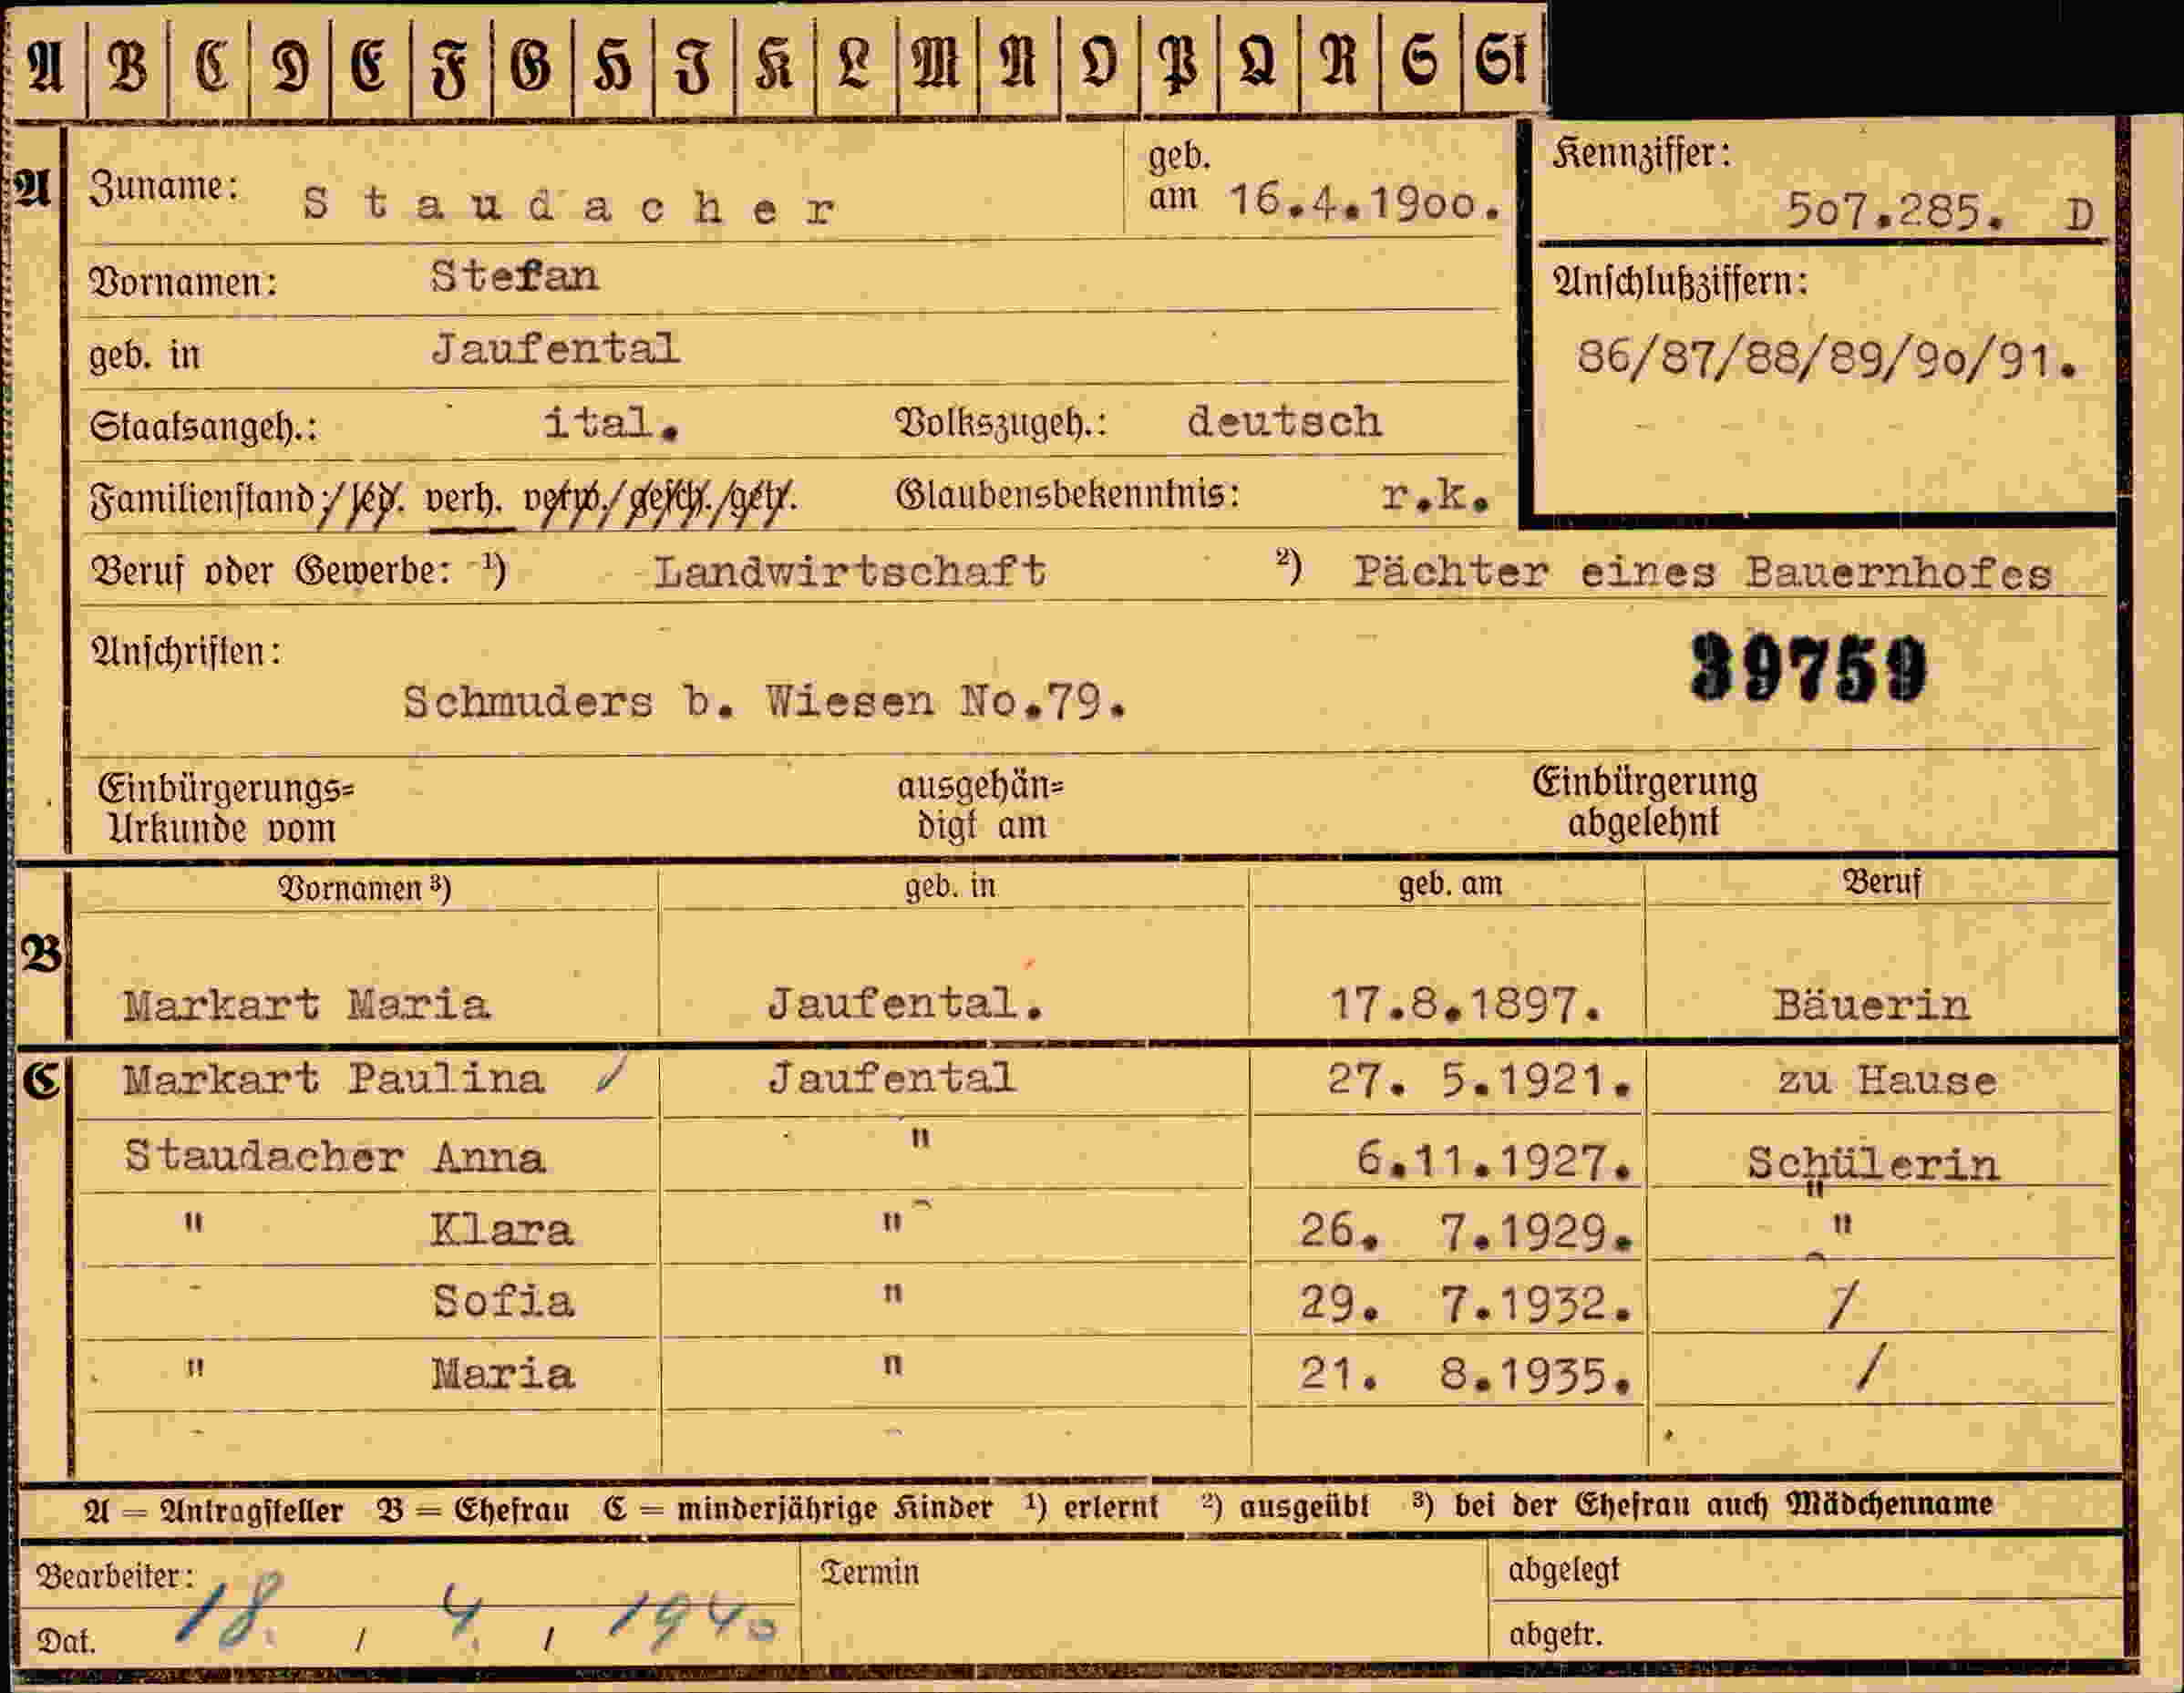 A B C D E F G H I K L M N O P Q R S St
A Zuname: Staudacher geb. am 16.4.1900. Kennziffer: 507.285. D
Vornamen: Stefan Anschlußziffern:
geb. in Jaufental 86/87/88/89/90/91.
Staatsangeh.: ital. Volkszugeh.: deutsch
Familienstand:/led. verh. verw./gesch./getr. Glaubensbekenntnis: r.k.
Beruf oder Gewerbe: ¹) Landwirtschaft ²) Pächter eines Bauernhofes
Anschriften: 39759
Schmuders b. Wiesen No.79.
Einbürgerungs= ausgehän= Einbürgerung
Urkunde vom digt am abgelehnt
Vornamen ³) geb. in geb. am Beruf
B
Markart Maria Jaufental. 17.8.1897. Bäuerin
C Markart Paulina Jaufental 27. 5.1921. zu Hause
Staudacher Anna " 6.11.1927. Schülerin
" Klara " 26. 7.1929. "
Sofia " 29. 7.1932. /
" Maria " 21. 8.1935. /
A = Antragsteller B = Ehefrau C = minderjährige Kinder ¹) erlernt ²) ausgeübt ³) bei der Ehefrau auch Mädchenname
Bearbeiter: Termin abgelegt
Dat. 18. / 4. / 1940 abgetr.